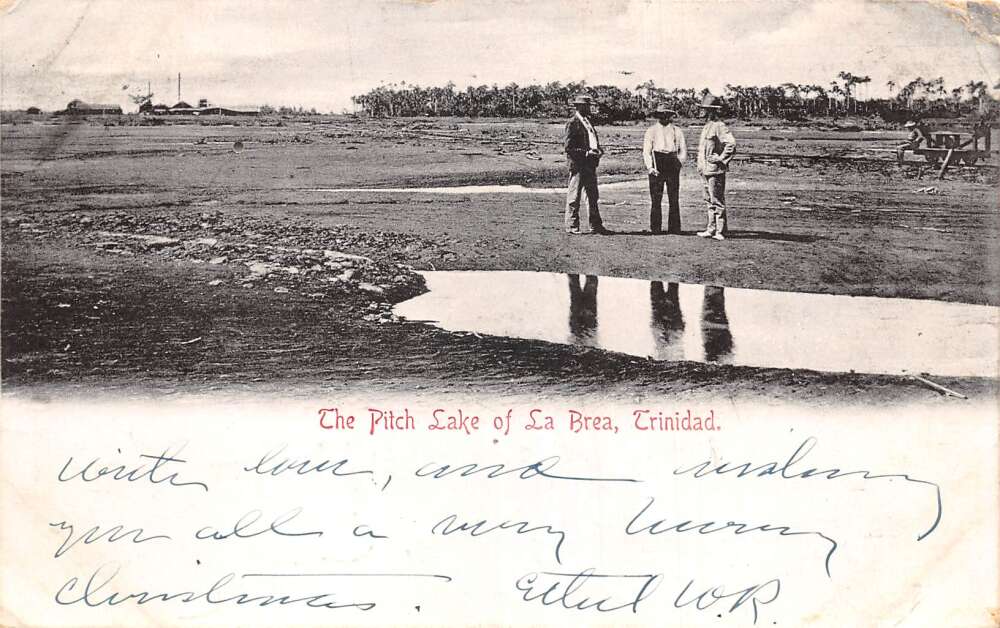 The Pitch Lake of La Brea, Trinidad.
With love, and wishing
you all a very merry
Christmas. Ethel W.R.